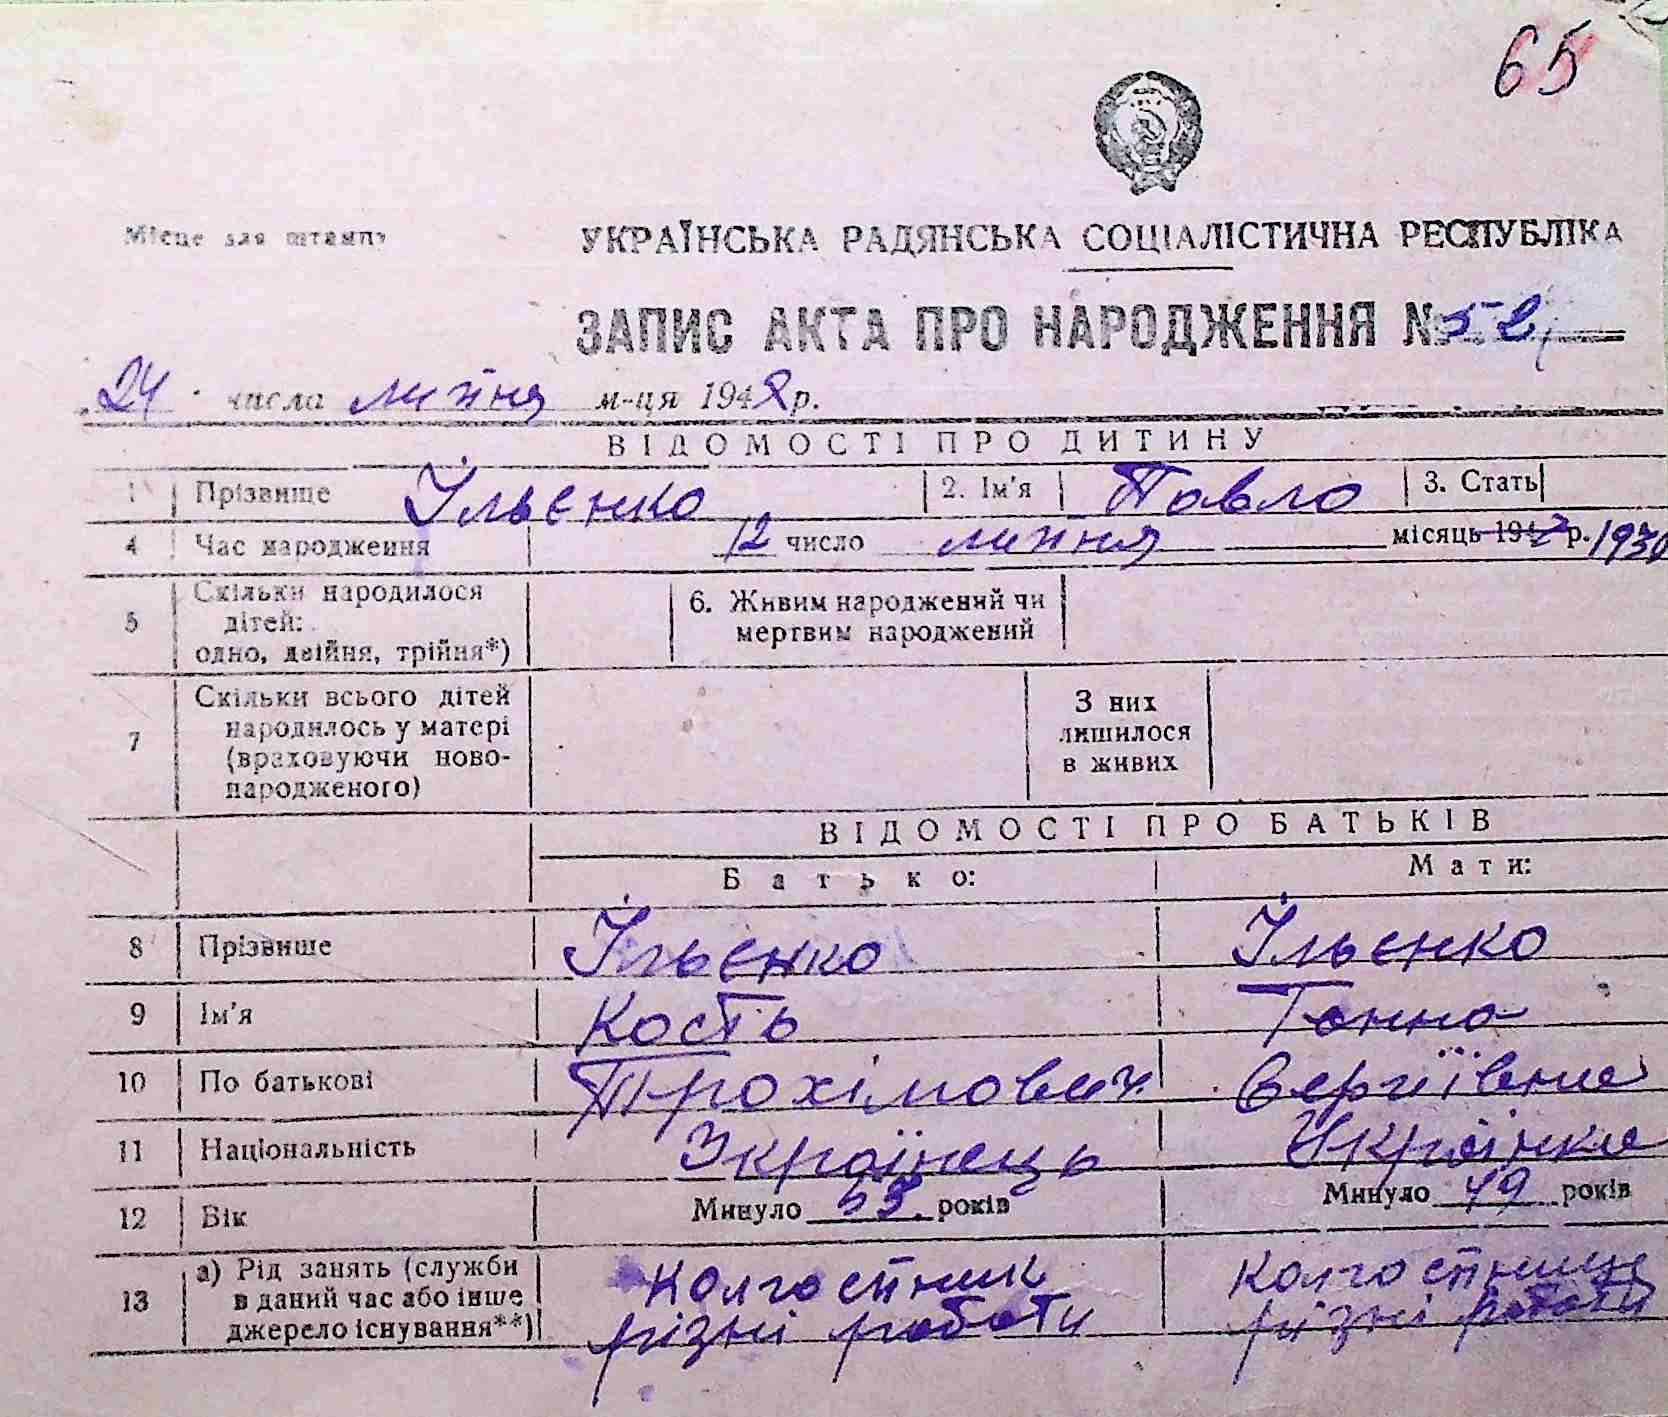 65
Місце для штампу
УКРАЇНСЬКА РАДЯНСЬКА СОЦІАЛІСТИЧНА РЕСПУБЛІКА
ЗАПИС АКТА ПРО НАРОДЖЕННЯ № 52
24 числа липня м-ця 1948 р.
ВІДОМОСТІ ПРО ДИТИНУ
1 Прізвище Ільєнко 2. Ім'я Павло 3. Стать
4 Час народження 12 число липня місяць 194 р. 1930
5 Скільки народилося
дітей:
одно, двійня, трійня*)
6. Живим народжений чи
мертвим народжений
7 Скільки всього дітей
народилось у матері
(враховуючи ново-
народженого)
З них
лишилося
в живих
ВІДОМОСТІ ПРО БАТЬКІВ
Батько: Мати:
8 Прізвище Ільєнко Ільєнко
9 Ім'я Кость Ганна
10 По батькові Трохімович Сергіївна
11 Національність Українець Українка
12 Вік Минуло 53 років Минуло 49 років
13 а) Рід занять (служби
в даний час або інше
джерело існування**)
Колгоспник
різні роботи
Колгоспниця
різні роботи